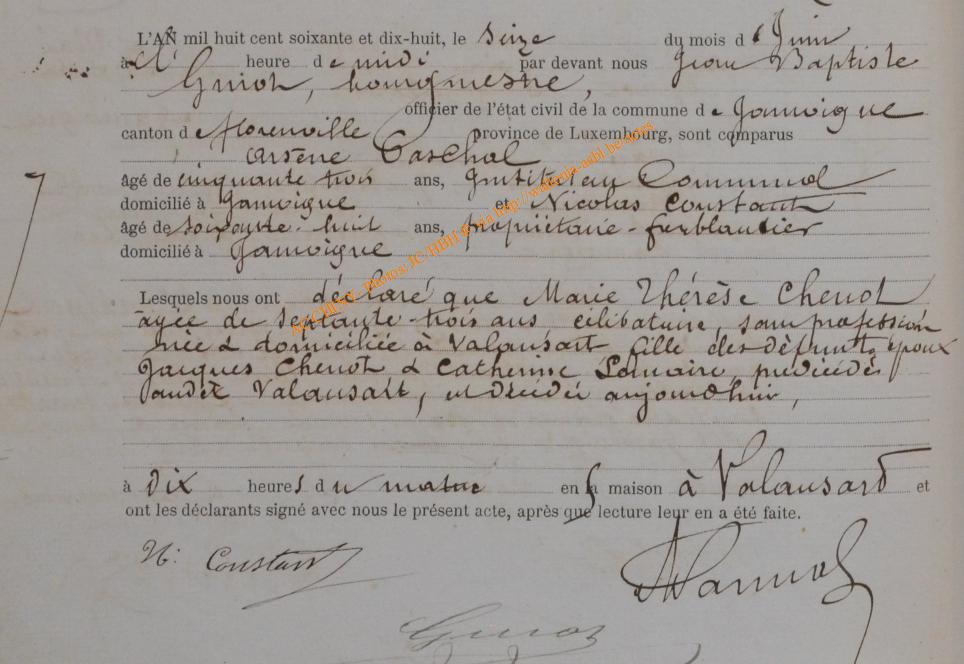 L'AN mil huit cent soixante et dix-huit, le seize du mois de Juin
à heure de midi par devant nous Jean Baptiste
Guiot, bourgmestre,
officier de l'état civil de la commune de Jamoigne
canton de Florenville province de Luxembourg, sont comparus
Arsène Paschal
âgé de cinquante trois ans, Instituteur Communal
domicilié à Jamoigne et Nicolas Constant
âgé de soixante-huit ans, propriétaire-ferblantier
domicilié à Jamoigne
Lesquels nous ont déclaré que Marie Thérèse Chenot
agée de septante-trois ans, célibataire, sans profession
née & domiciliée à Valansart fille des défunts époux
Jacques Chenot & Catherine Lemaire, prédécédés
audit Valansart, est décédée aujourdhui,
à dix heures du matin en sa maison à Valansart et
ont les déclarants signé avec nous le présent acte, après que lecture leur en a été faite.
N: Constant
Guiot